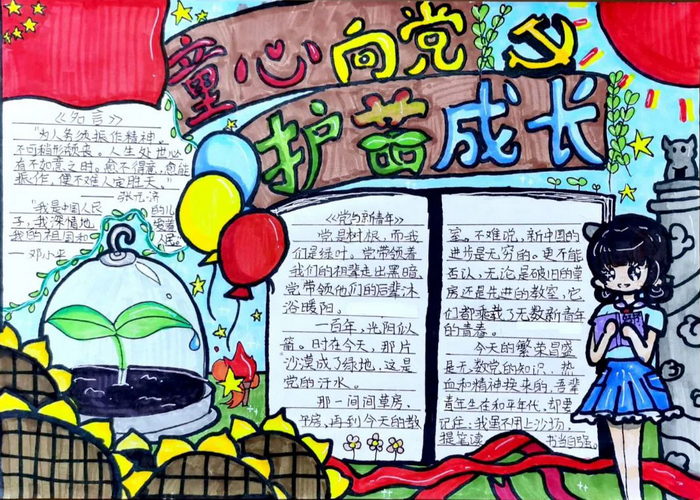 童心向党
护苗成长
《名言》
"为人务须振作精神,
不可稍形颓丧。人生处地必
有不如意之时。愈不得意,愈能
振作,便不难人定胜天。"
——张元济
"我是中国人民的儿
子,我深情地爱着
我的祖国和人民。
—邓小平
《党与新青年》
党是树根,而我
们是绿叶。党带领着
我们的祖辈走出黑暗,
党带领他们的后辈沐
浴暖阳。
一百年,光阴似
箭。时在今天,那片
沙漠成了绿地,这是
党的汗水。
那一间间草房、
平房,再到今天的教
室。不难说,新中国的
进步是无穷的。更不能
否认,无论是破旧的草
房还是先进的教室,它
们都承载了无数新青年
的青春。
今天的繁荣昌盛
是无数党的知识、热
血和精神换来的,吾辈
青年生在和平年代,却要
记住:我虽不用上沙场,
提笔读书当自强。